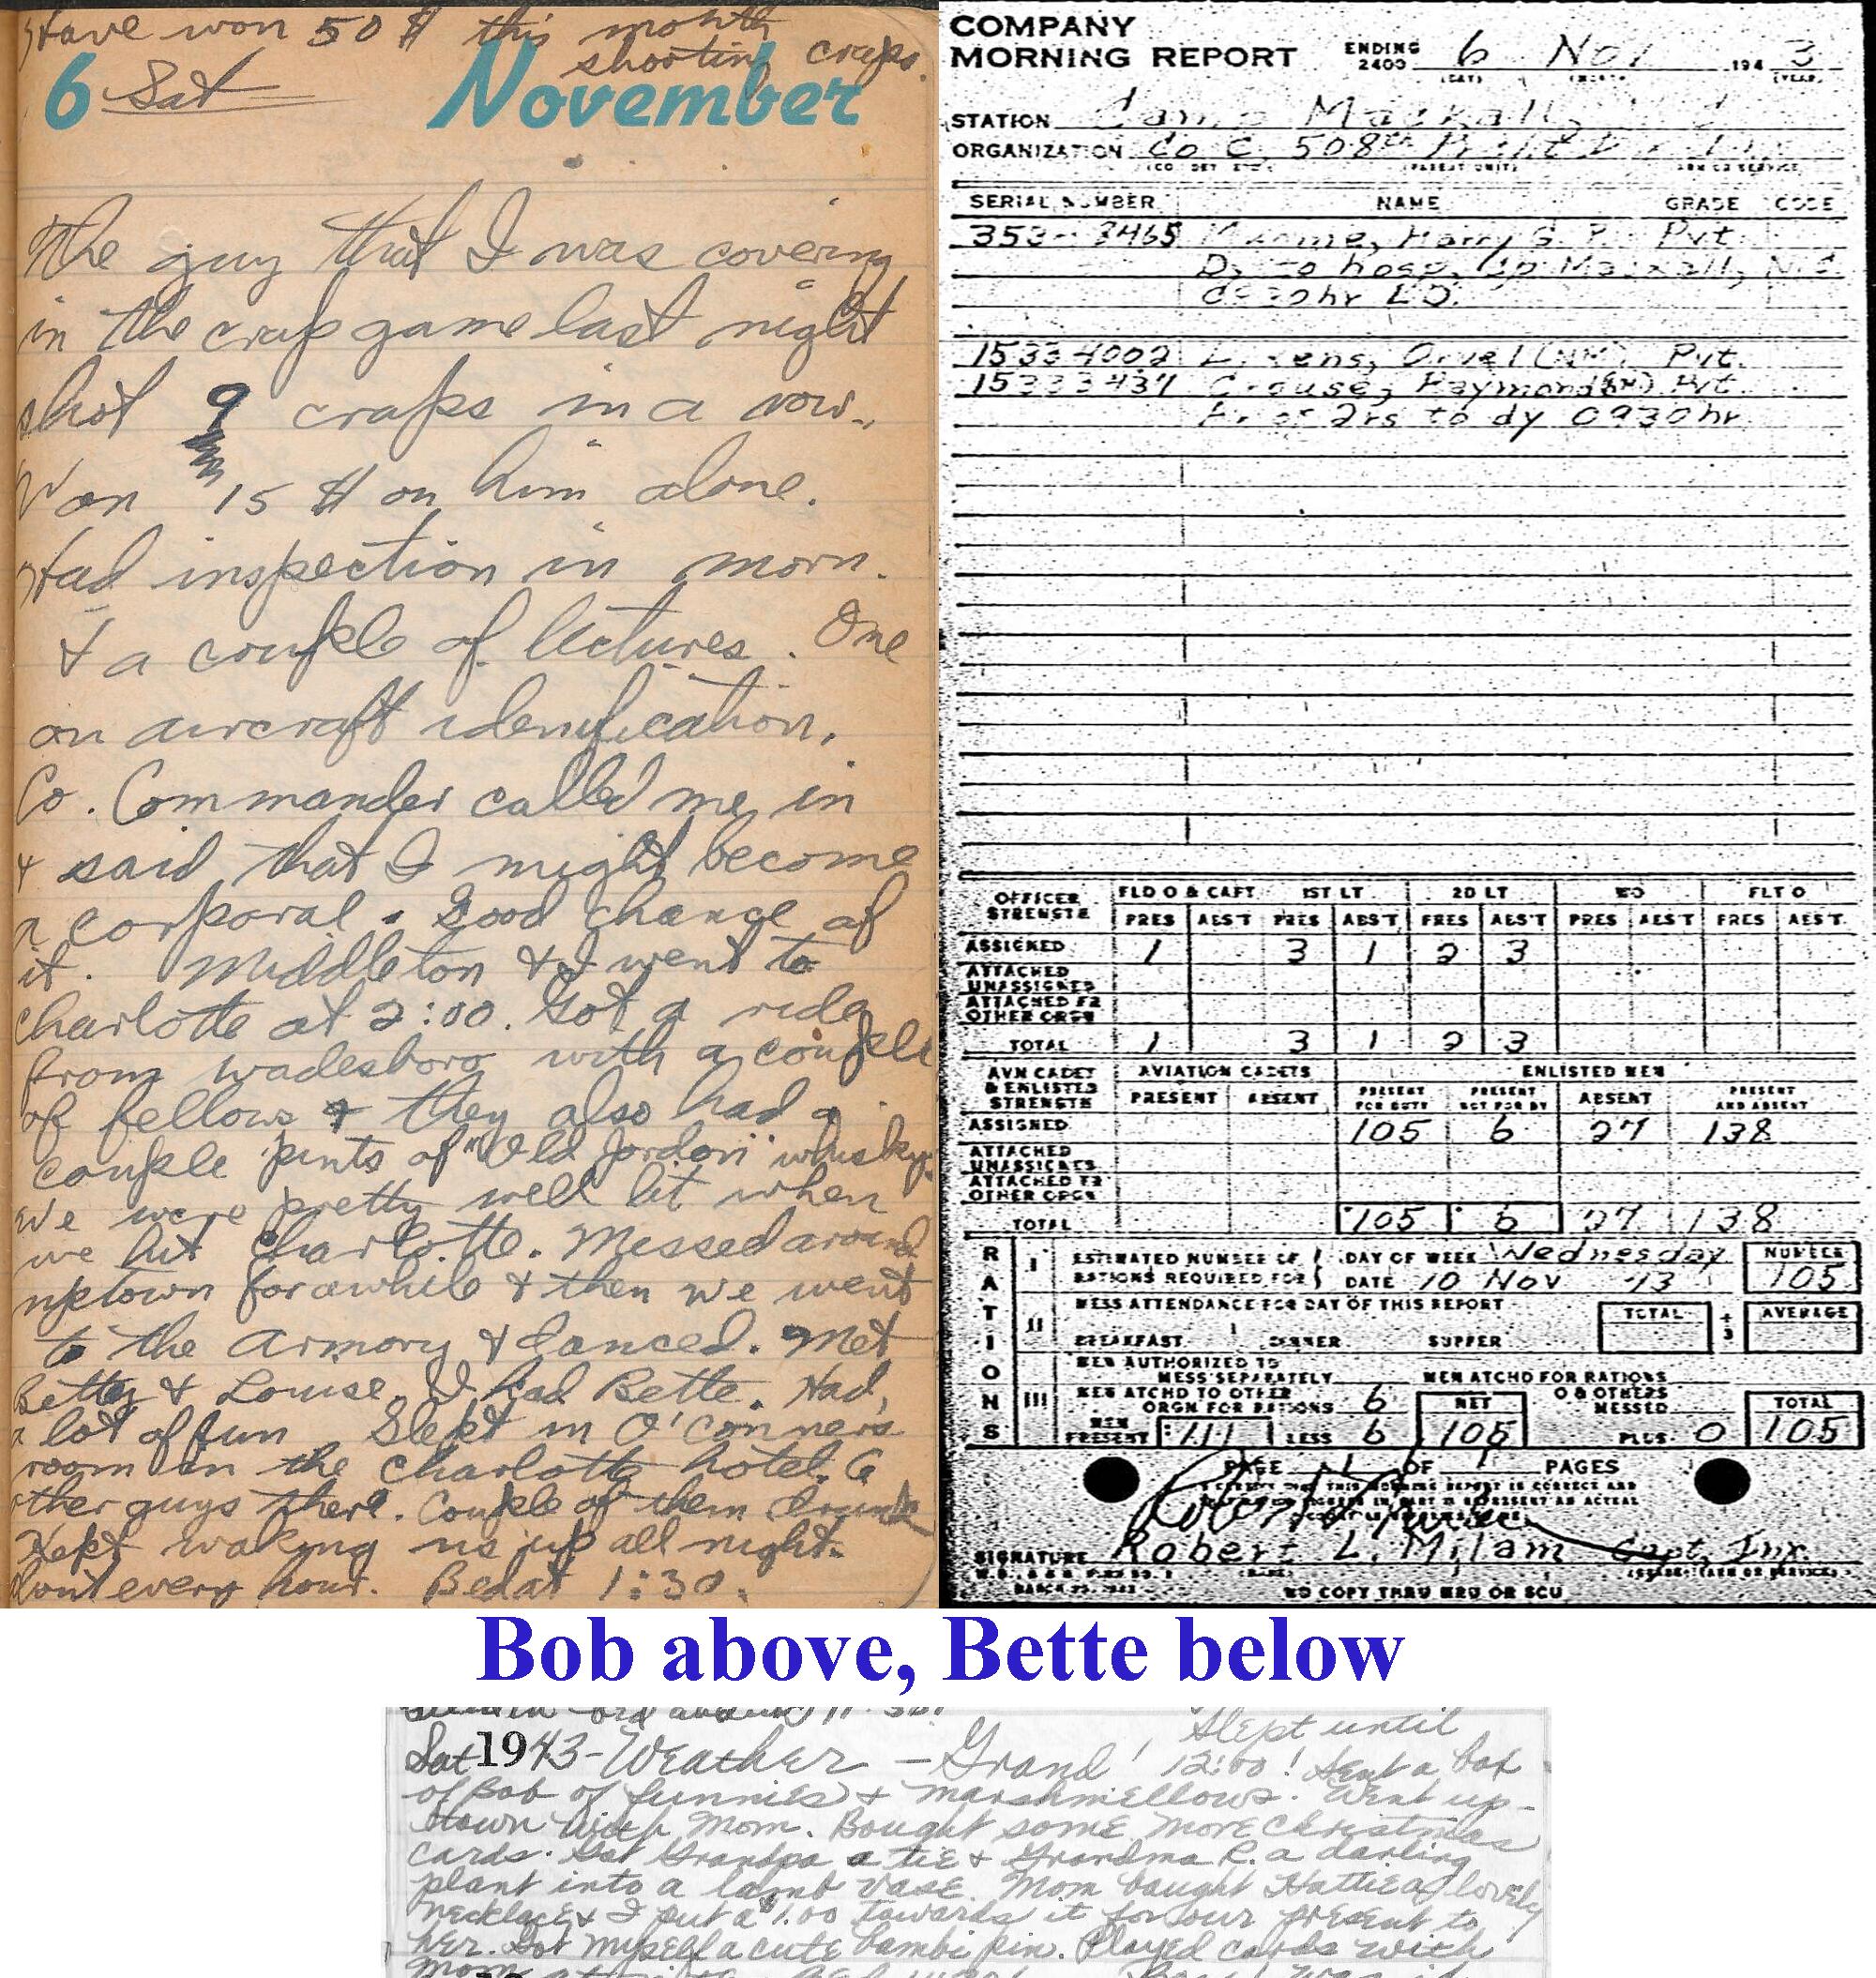 Have won 50 $ this month
shooting craps.
6 Sat November
The guy that I was covering
in the crap game last night
shot 9 craps in a row.
Won 15 $ on him alone.
Had inspection in morn.
& a couple of lectures. One
on aircraft idenification.
Co. Commander called me in
& said that I might become
a corporal. Good chance of
it. Middleton & I went to
Charlotte at 2:00. Got a ride
from Wadesboro with a couple
of fellows & they also had a
couple pints of "Old Jordon" whisky.
We were pretty well lit when
we hit Charlotte. Messed around
uptown for awhile & then we went
to the Armory & danced. Met
Bette & Louise. I had Bette. Had
a lot of fun Slept in O'conners
room in the Charlotte hotel. 6
other guys there. Couple of them drunk
Kept waking us up all night.
every hour. Bed at 1:30.
COMPANY
MORNING REPORT ENDING 2400 6 Nov 1943
(DAY) (MONTH) (YEAR)
STATION Camp Mackall,
ORGANIZATION Co C, 508th
(CO DET ETC) (PARENT UNIT) (ARM OR SERVICE)
SERIAL NUMBER NAME GRADE CODE
Harry S. P. Pvt.
Dy to hosp, Cp Mackall, N.C.
LD.
15334002 Orvel (NMI) Pvt.
15333437 Crouse, Raymond (NMI) Pvt
to dy 0930hr
OFFICER STRENGTH FLD O & CAPT 1ST LT 2D LT WO FLT O
PRES ABS'T PRES ABS'T PRES ABS'T PRES ABS'T PRES ABS'T
ASSIGNED 1 3 1 2 3
ATTACHED UNASSIGNED
ATTACHED FR OTHER ORGN
TOTAL 1 3 1 2 3
AVN CADET & ENLISTED STRENGTH AVIATION CADETS ENLISTED MEN
PRESENT ABSENT PRESENT FOR DUTY PRESENT NOT FOR DY ABSENT PRESENT AND ABSENT
ASSIGNED 105 6 27 138
ATTACHED UNASSIGNED
ATTACHED FR OTHER ORGN
TOTAL 105 6 27 138
RATIONS
I ESTIMATED NUMBER OF RATIONS REQUIRED FOR DAY OF WEEK Wednesday DATE 10 Nov 43 NUMBER 105
II MESS ATTENDANCE FOR DAY OF THIS REPORT TOTAL ÷ 3 AVERAGE
BREAKFAST DINNER SUPPER
III MEN AUTHORIZED TO MESS SEPARATELY MEN ATCHD FOR RATIONS
MEN ATCHD TO OTHER ORGN FOR RATIONS 6 NET O & OTHERS MESSED TOTAL
MEN PRESENT 111 LESS 6 105 PLUS 0 105
PAGE 1 OF 1 PAGES
SIGNATURE Robert L. Milam Capt, Inf.
NO COPY THRU MRU OR SCU
Bob above, Bette below
Slept until
Sat 1943 - Weather - Grand! 12:00! Sent a box
of Bob of funnies & marshmellows. Went up-
town with Mom. Bought some more Christmas
cards. Got Grandpa a tie & Grandma R. a darling
plant into a lamb vase. Mom bought Hattie a lovely
necklace & I put a $1.00 towards it for our present to
her. Got myself a cute bambi pin. Played cards with
Mom